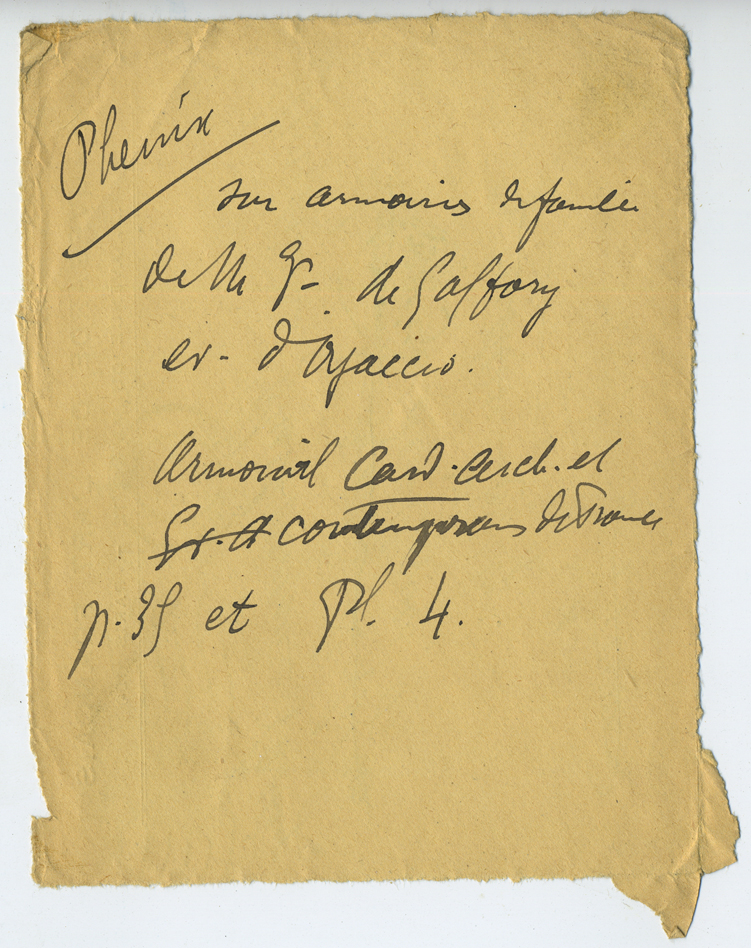 Phenix
sur armoiries de famille
de M gr de Gaffory
ev. d'Ajaccio.
Armorial Card. arch. et
contemporains de France
p. 35 et Pl. 4.